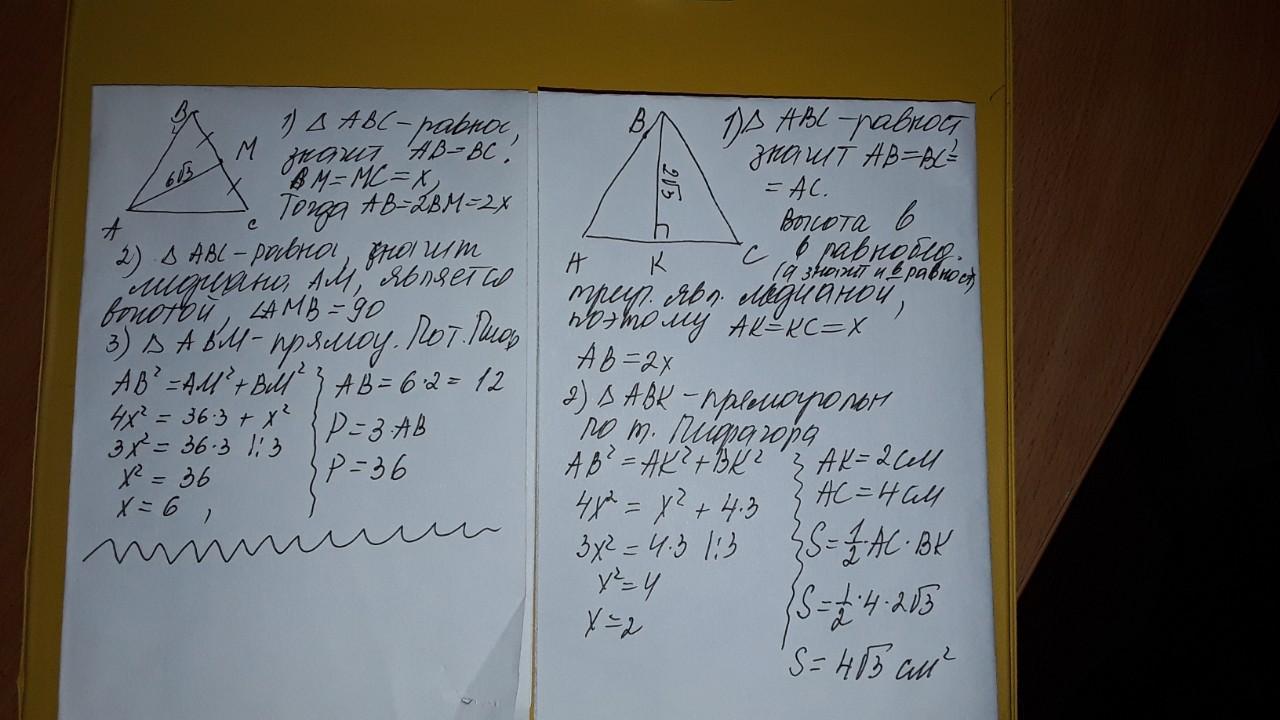 B
M
6√3
A
C
1) Δ ABC – равнос,
значит AB = BC.
BM = MC = x,
Тогда AB = 2BM = 2x
2) Δ ABC – равна, значит
медиана AM, является
высотой, ∠AMB = 90
3) Δ ABM – прямоу. По т. Пиф
AB² = AM² + BM²
4x² = 36·3 + x²
3x² = 36·3 |:3
x² = 36
x = 6 ,
AB = 6·2 = 12
P = 3·AB
P = 36
B
2√3
A
K
C
1) Δ ABC – равност
значит AB = BC =
= AC.
Высота в
в равнобед.
(а значит и в равност)
треуг. явл. медианой,
поэтому AK = KC = x
AB = 2x
2) Δ ABK – прямоугольн
по т. Пифагора
AB² = AK² + BK²
4x² = x² + 4·3
3x² = 4·3 |:3
x² = 4
x = 2
AK = 2 см
AC = 4 см
S = 1/2·AC·BK
S = 1/2·4·2√3
S = 4√3 см²